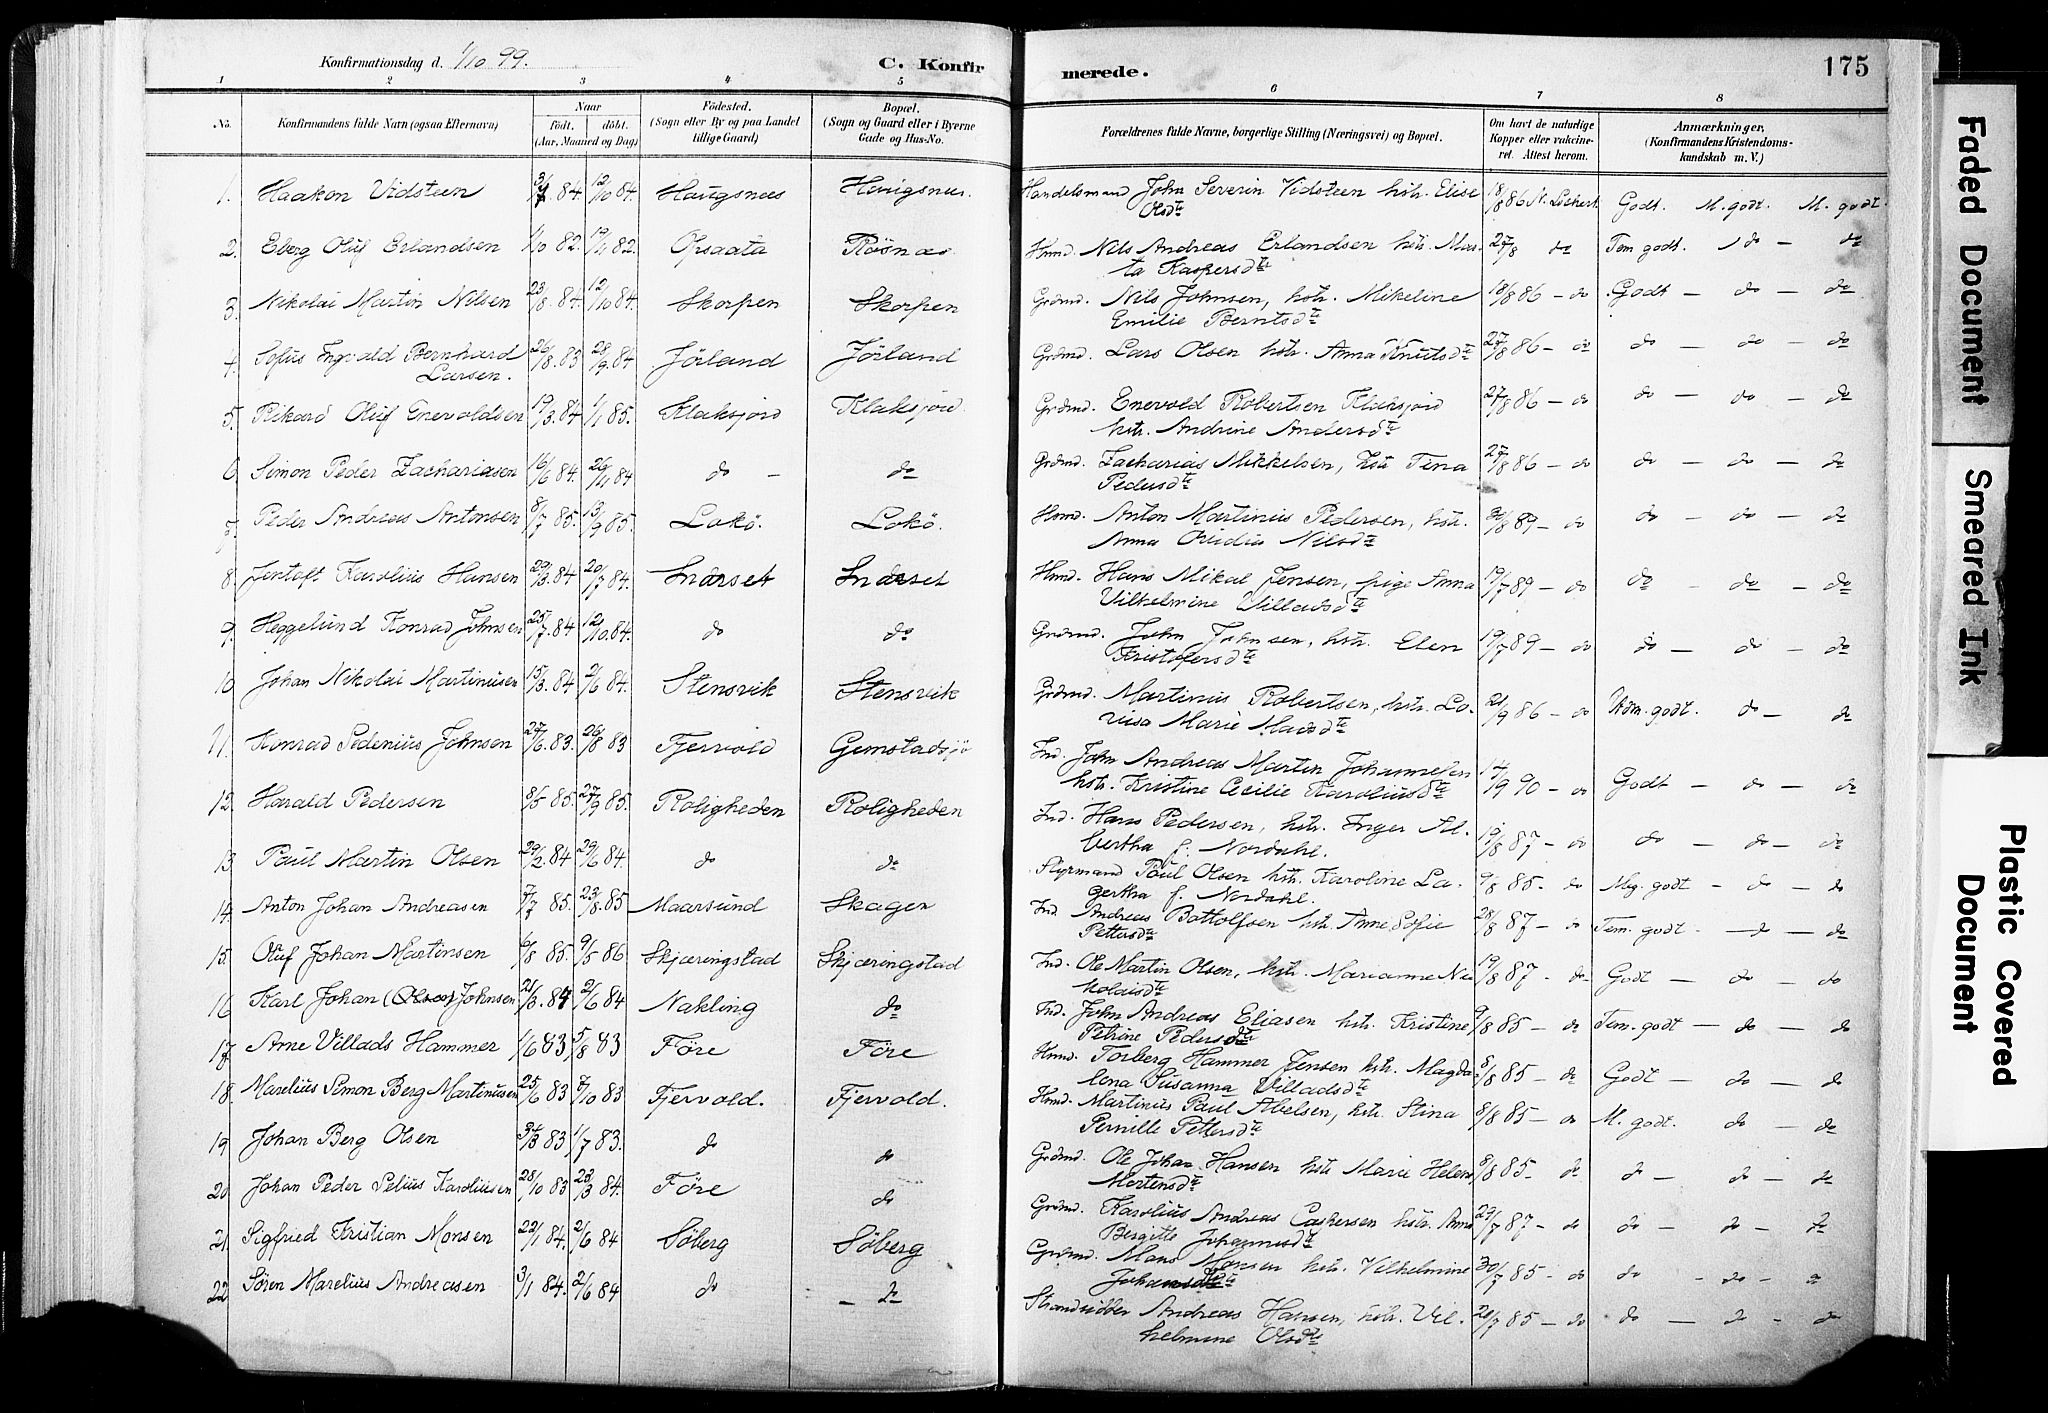 Konfirmationsdag d. 1/10 99.
C. Konfirmerede.
175
1 2 3 4 5 6 7 8
No. Konfirmandens fulde Navn (ogsaa Efternavn) Naar Födt. döbt. (Aar, Maaned og Dag) Födested. (Sogn eller By og paa Landet tillige Gaard) Bopæl. (Sogn og Gaard eller i Byerne Gade og Hus-No. Forældrenes fulde Navne, borgerlige Stilling (Næringsvei) og Bopæl. Om havt de naturlige Kopper eller vaccineret. Attest herom. Anmærkninger, (Konfirmandens Kristendomskundskab m. V.)
1. Haakon Vidsteen 84. 12/10 84. Haugsnes Haugsnes. Handelsmand John Severin Vidsteen hstr. Elise
Olsdtr 18/8 86 Godt. M. godt. M. godt.
2. Eberg Oluf Erlandsen 1/10 82. 82. Opsaata Røsnæs Hmd. Nils Andreas Erlandsen hstr. Mar-
ta Kaspersdtr 27/8 do Tem. godt. do — do
3. Nikolai Martin Nilsen 23/8. 84. 12/10 84. Skorpen Skorpen Grdmd. Nils Johnsen, hstr. Mikeline
Emilie Berntsdtr 18/8 86 — do Godt — do — do
4. Sofus Ingvald Bernhard
Larsen. 26/8. 83 28/9. 84 Jörland Jörland Grdmd. Lars Olsen hstr. Anna Knutsdtr 27/8 86 — do do — do — do
5. Rikard Oluf Enevoldsen 19/3. 84 1/1 85. Klaksjord Klaksjord Grdmd. Enevold Robertsen Klaksjord
hstr. Andrine Andersdtr 27/8 86 — do do — do — do
6. Simon Peder Zachariasen 16/6 84. 26/11 84 do — do Grdmd. Zacharias Mikkelsen, hstr Tina
Pedersdtr 27/8 86 — do do — do — do
7. Peder Andreas Antonsen 8/7 85. 13/9 85. Lokö. Lokö. Hmd. Anton Martinus Pedersen, hstr.
Anna Ovidia Nilsdtr 30/8 89 — do do — do — do
8. Jentoft Karolius Hansen 29/3. 84 20/7 84. Indreset Indreset Hmd. Hans Mikal Jensen, pige Anna
Vilhelmine Villadsdtr 19/7 89 — do do — do — do
9. Heggelund Konrad Johnsen 25/7. 84 12/10. 84. do do Grdmd. John Johnsen, hstr. Elen
Kristofersdtr 19/7 89 — do do — do — do
10 Johan Nikolai Martinusen 15/3. 84 2/6 84. Stensvik Stensvik Grdmd. Martinus Robertsen, hstr. Lo-
visa Marie Madsdtr 21/9 86 — do Udm. godt. do — do
11. Konrad Pedenius Johnsen 27/6. 83. 26/8 83 Fjervold Gemstadsjö Ind. John Andreas Martin Johannesen
hstr. Kristine Cecilie Karoliusdtr 14/9 90 — do Godt — do — do
12. Harald Pedersen 8/5 85. 27/9 85. Roligheden Roligheden Ind. Hans Pedersen, hstr. Inger Al-
bertha f. Nordahl. 19/8 87 — do do — do — do
13 Paul Martin Olsen 29/2. 84 29/6 84 do do Styrmand Paul Olsen hstr. Karoline La-
gertha f. Nordahl. 9/8 85 — do Meg. godt — do — do
14. Anton Johan Andreasen 7/7 85. 23/8. 85 Maarsund Skagen Ind. Andreas Bottolfsen hstr. Anne Sofie
Pettersdtr 28/8 87 — do Tem. godt — do — do
15. Oluf Johan Martinsen 6/8 85. 9/5 86 Skjæringstad Skjæringstad Ind. Ole Martin Olsen, hstr. Marianne Ni-
kolaisdtr 19/8 87 — do Godt — do — do
16 Karl Johan (Olsen) Johnsen 21/3. 84 2/6 84 Nakling do Ind. John Andreas Eliasen hstr. Kristine
Petrine Pedersdtr 9/8 85 — do Tem. godt — do — do
17. Arne Villads Hammer 1/6 83 5/8 83 Före Före Hmd. Torberg Hammer Jensen hstr. Magda-
lena Susanna Villadsdtr 8/8 85 — do Godt — do — do
18. Marelius Simon Berg Martinusen 25/6 83 7/10 83 Fjervold. Fjervold. Hmd. Martinus Paul Abelsen, hstr. Stina
Pernille Pettersdtr 8/8 85 — do M. godt. do — do
19 Johan Berg Olsen 83 1/7 83. do do Grdmd. Ole Johan Hansen hstr Marie Helena
Mortensdtr 8/8 85 — do do — do — do
20 Johan Peder Selius Karoliusen 28/10 83 23/3 84. Före do Grdmd. Karolius Andreas Caspersen hstr. Anna
Bergitte Johannesdtr 29/7 87 — do do — do — do
21. Sigfried Kristian Monsen 22/1 84. 2/6 84 Söberg Söberg Grdmd. Mons Monsen hstr. Vilhelmine
Johansdtr 30/7 85 — do do — do — do
22 Sören Marelius Andreasen 3/1 84. 2/6 84 do — do Strandsidder Andreas Hansen, hstr. Vil-
helmine Olsdtr 20/7 85 — do do — do — do
Faded Document
Smeared Ink
Plastic Covered
Document